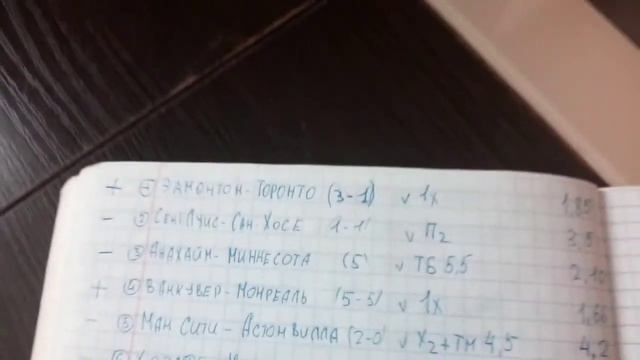 + ① Эдмонтон - Торонто (3-1) v 1X 1,85
- ② Сент Луис - Сан Хосе 1-1 v П2 3,5
- ③ Анахайм - Миннесота (5 v ТБ 5,5 2,10
+ ④ Ванкувер - Монреаль (5-3) v 1X 1,66
- ⑤ Ман Сити - Астон Вилла (2-0 v X2+ТМ 4,5 4,2